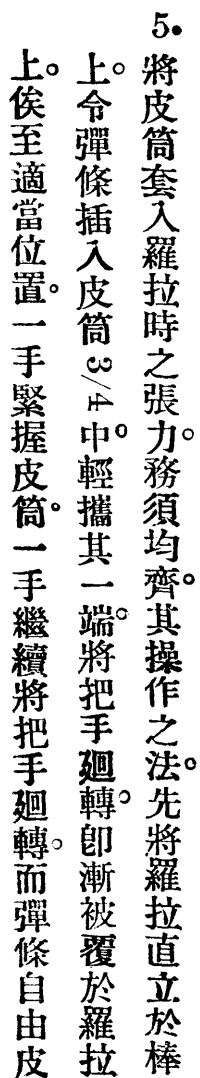 5. 將皮筒套入羅拉時之張力。務須均齊。其操作之法。先將羅拉直立於棒
上。令彈條插入皮筒3/4中。輕攜其一端。將把手廻轉。卽漸被覆於羅拉
上。俟至適當位置。一手緊握皮筒。一手繼續將把手廻轉。而彈條自由皮